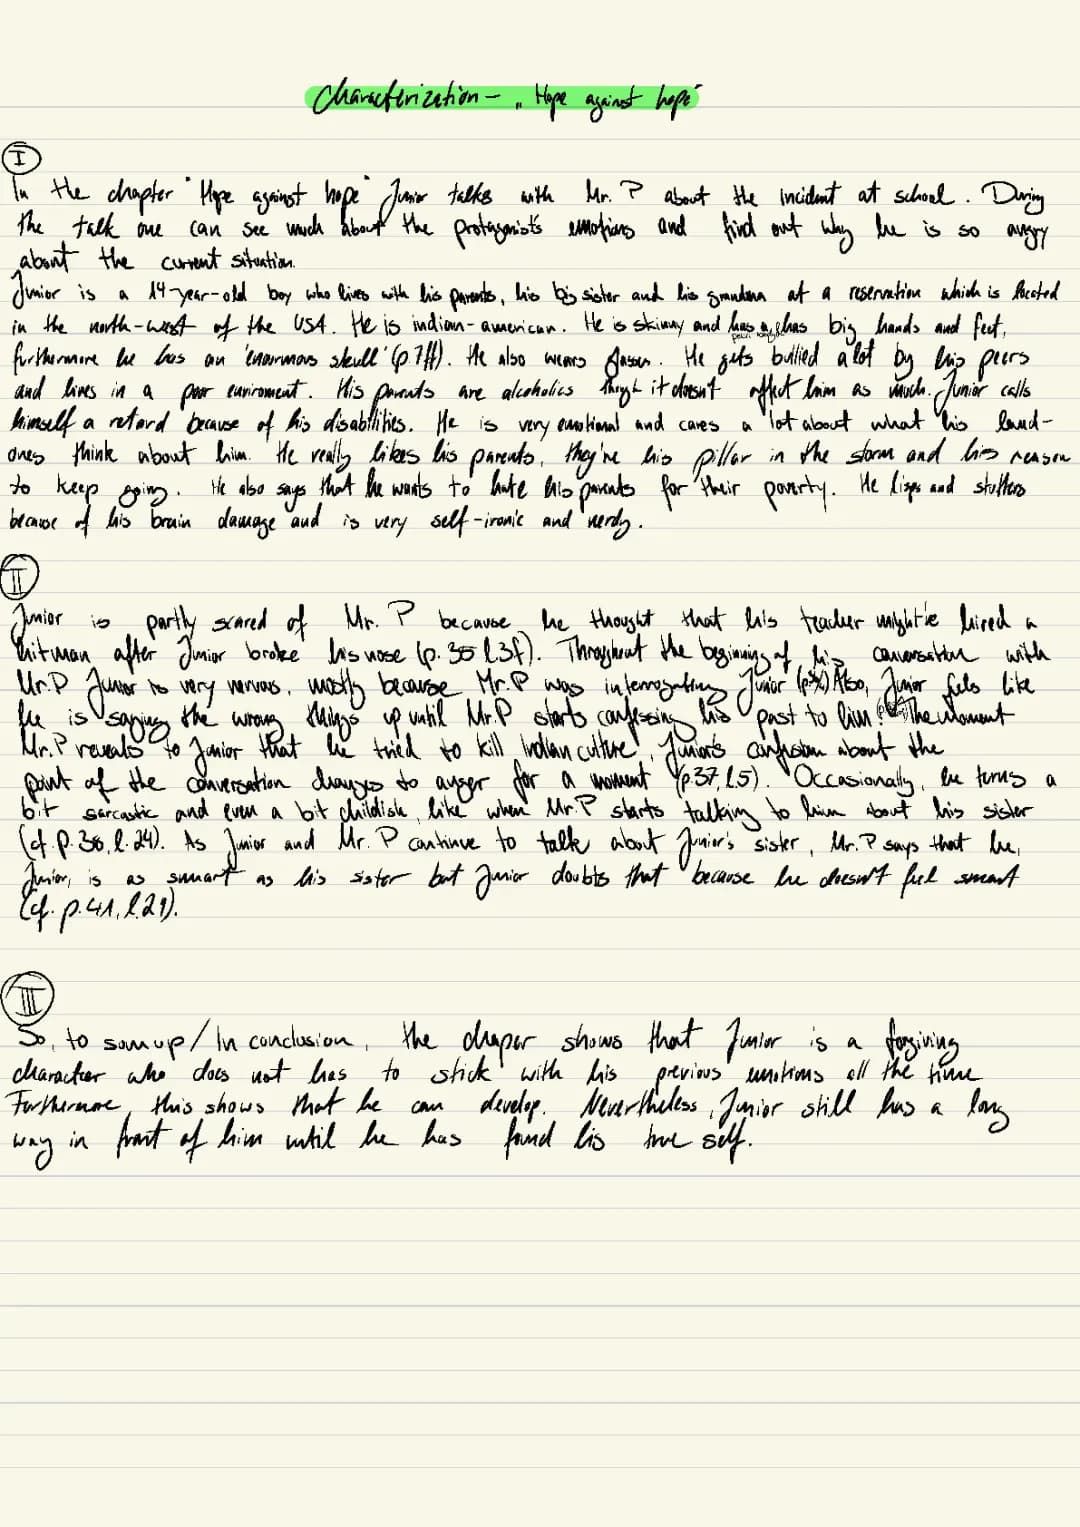 Characterization - „Hope against hope"
I
In the chapter "Hope against hope" Junior talks with Mr. P about the incident at school. During
the talk one can see much about the protagonist's emotions and find out why he is so angry
about the current situation.
Junior is a 14-year-old boy who lives with his parents, his big sister and his grandma at a reservation which is located
in the north-west of the USA. He is indian-american. He is skinny and has big hands and feet,
furthermore he has an 'enormous skull' (p.7ff). He also wears glasses. He gets bullied a lot by his peers
and lives in a poor enviroment. His parents are alcoholics though it doesn't affect him as much. Junior calls
himself a retard because of his disabilities. He is very emotional and cares a lot about what his loud-
ones think about him. He really likes his parents, they're his pillar in the storm and his reason
to keep going. He also says that he wants to hate his parents for their poverty. He lisps and stutters
because of his brain damage and is very self-ironic and nerdy.
II
Junior is partly scared of Mr. P because he thought that his teacher might've hired a
hitman after Junior broke his nose (p. 35 l.3f). Throughout the beginning of his conversation with
Mr.P Junior is very nervous, mostly because Mr.P was interrogating Junior Also, Junior feels like
he is saying the wrong things up until Mr.P starts confessing his past to him. The moment
Mr.P reveals to Junior that he tried to kill Indian culture, Junior's confusion about the
point of the conversation changes to anger for a moment (p.37, l.5). Occasionally, he turns a
bit sarcastic and even a bit childish, like when Mr.P starts talking to him about his sister
(cf. p.38, l.24). As Junior and Mr. P continue to talk about Junior's sister, Mr.P says that he,
Junior, is as smart as his sister but Junior doubts that because he doesn't feel smart
(cf. p.41, l.21).
III
So, to sum up / In conclusion, the chaper shows that Junior is a forgiving
character who does not has to stick with his previous emotions all the time.
Furthermore, this shows that he can develop. Nevertheless, Junior still has a long
way in front of him until he has found his true self.